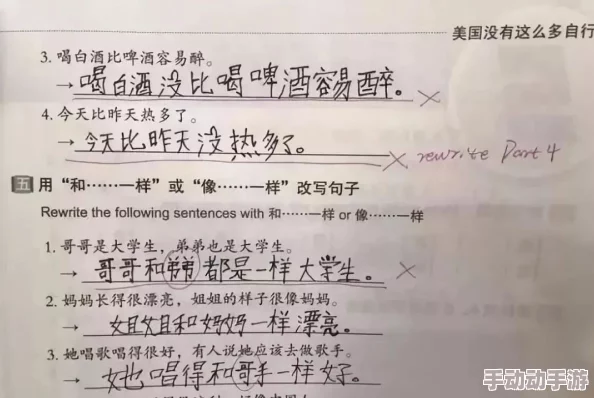 美国没有这么多自行
3. 喝白酒比啤酒容易醉。
→ 喝白酒没比喝啤酒容易醉。 ×
4. 今天比昨天热多了。
→ 今天比昨天没热多了。 × rewrite Part 4
五 用“和……一样”或“像……一样”改写句子
Rewrite the following sentences with 和……一样 or 像……一样
1. 哥哥是大学生，弟弟也是大学生。
→ 哥哥和弟弟都是一样大学生。 ×
2. 妈妈长得很漂亮，姐姐的样子很像妈妈。
→ 姐姐和妈妈一样漂亮。
3. 她唱歌唱得很好，有人说她应该去做歌手。
→ 她唱得和歌手一样好。
手动动手游